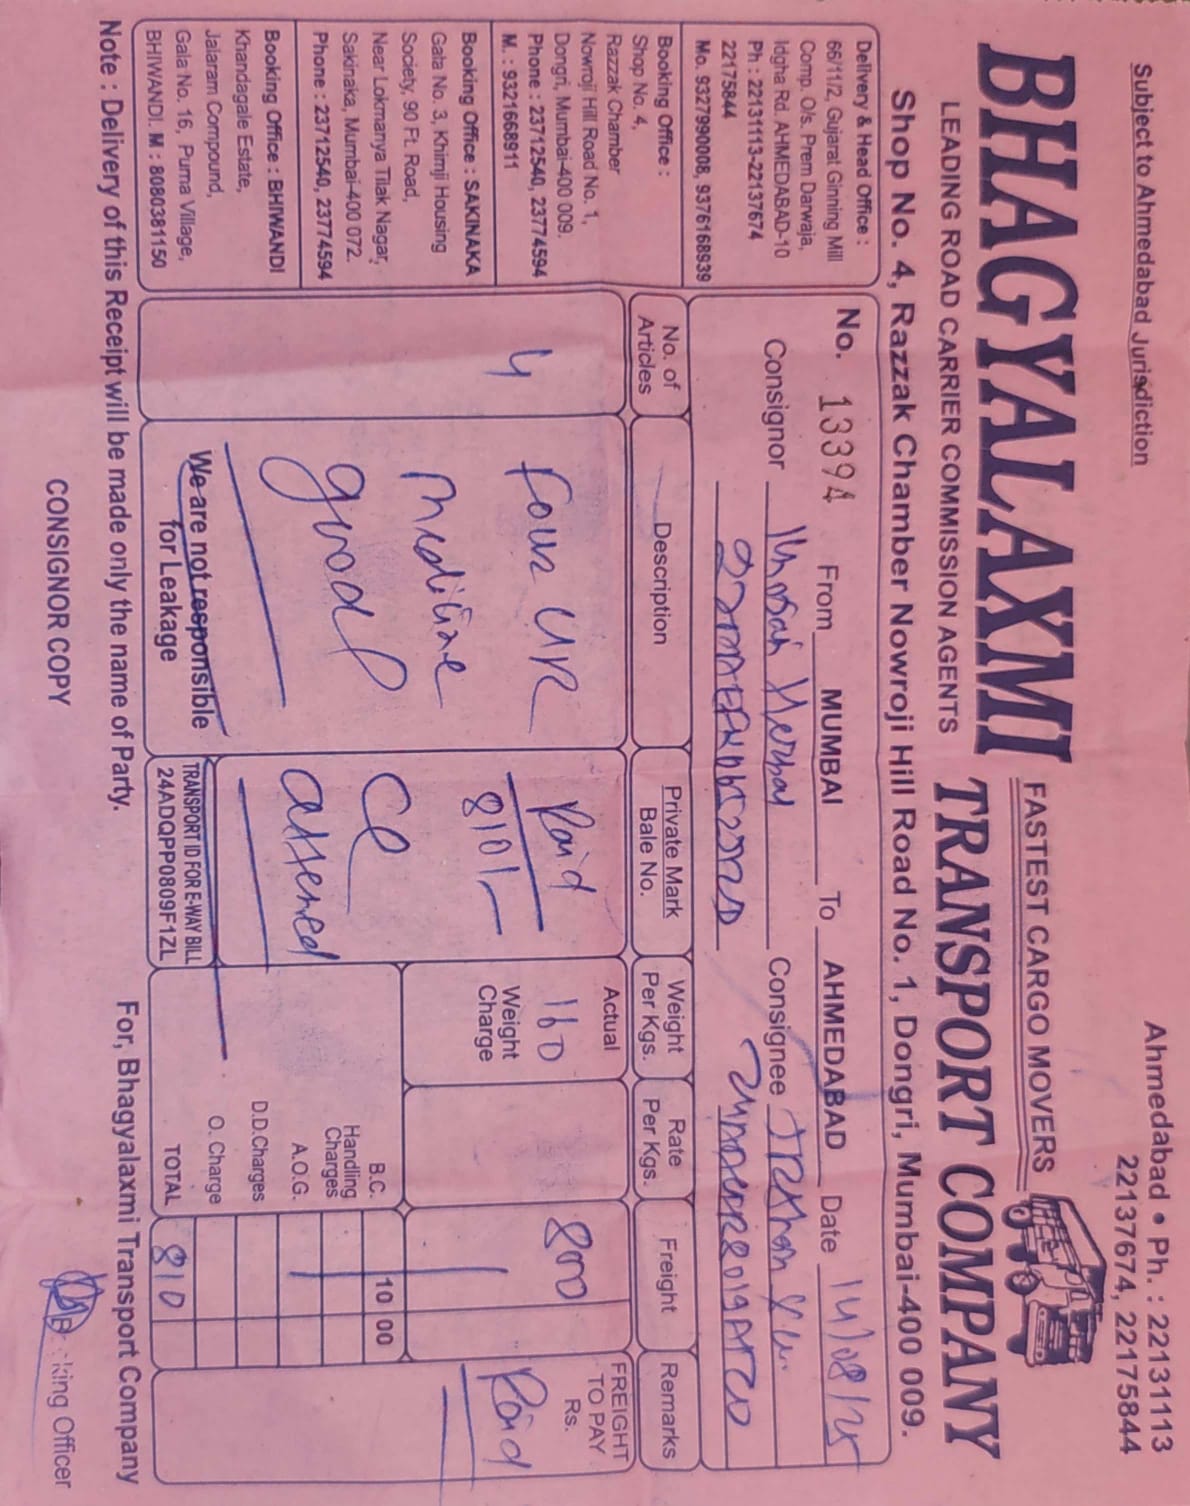 Subject to Ahmedabad Jurisdiction
Ahmedabad • Ph. : 22131113
22137674, 22175844
BHAGYALAXMI
FASTEST CARGO MOVERS
TRANSPORT COMPANY
LEADING ROAD CARRIER COMMISSION AGENTS
Shop No. 4, Razzak Chamber Nowroji Hill Road No. 1, Dongri, Mumbai-400 009.
Delivery & Head Office :
66/11/2, Gujarat Ginning Mill
Comp. O/s. Prem Darwaja,
Idgha Rd. AHMEDABAD-10
Ph : 22131113-22137674
22175844
Mo. 9327990008, 9376168939
Booking Office :
Shop No. 4,
Razzak Chamber
Nowroji Hill Road No. 1,
Dongri, Mumbai-400 009.
Phone : 23712540, 23774594
M. : 9321668911
Booking Office : SAKINAKA
Gala No. 3, Khimji Housing
Society, 90 Ft. Road,
Near Lokmanya Tilak Nagar,
Sakinaka, Mumbai-400 072.
Phone : 23712540, 23774594
Booking Office : BHIWANDI
Khandagale Estate,
Jalaram Compound,
Gala No. 16, Purna Village,
BHIWANDI. M : 8080381150
No. 13394 From MUMBAI To AHMEDABAD Date 14/08/25
Consignor Herbal Consignee
No. of Articles
Description
Private Mark
Bale No.
Weight Per Kgs.
Rate Per Kgs.
Freight
Remarks
4
Four
Medicine
good
We are not responsible
for Leakage
Paid
810/-
TRANSPORT ID FOR E-WAY BILL
24ADQPP0809F1ZL
Actual
160
Weight
Charge
800
FREIGHT
TO PAY
Rs.
Paid
B.C. 10 00
Handling
Charges
A.O.G.
D.D.Charges
O. Charge
TOTAL 810
Note : Delivery of this Receipt will be made only the name of Party.
For, Bhagyalaxmi Transport Company
CONSIGNOR COPY
king Officer